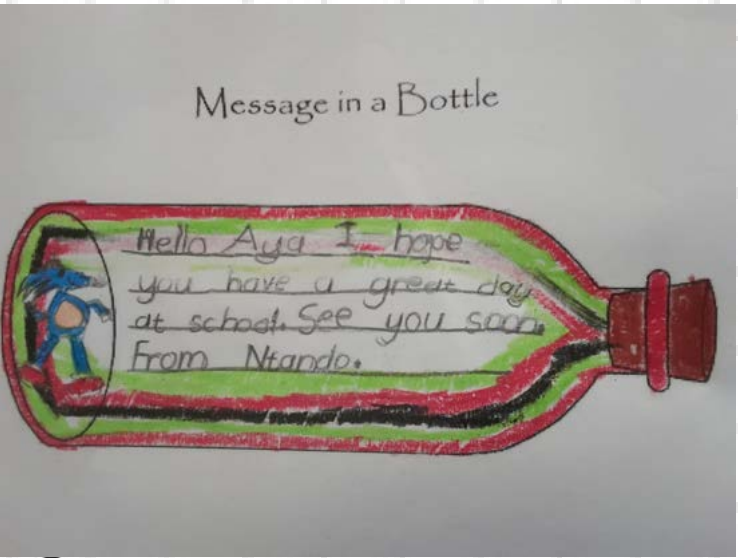 Message in a Bottle
Hello Aya I hope
you have a great day
at school. See you soon.
From Ntando.